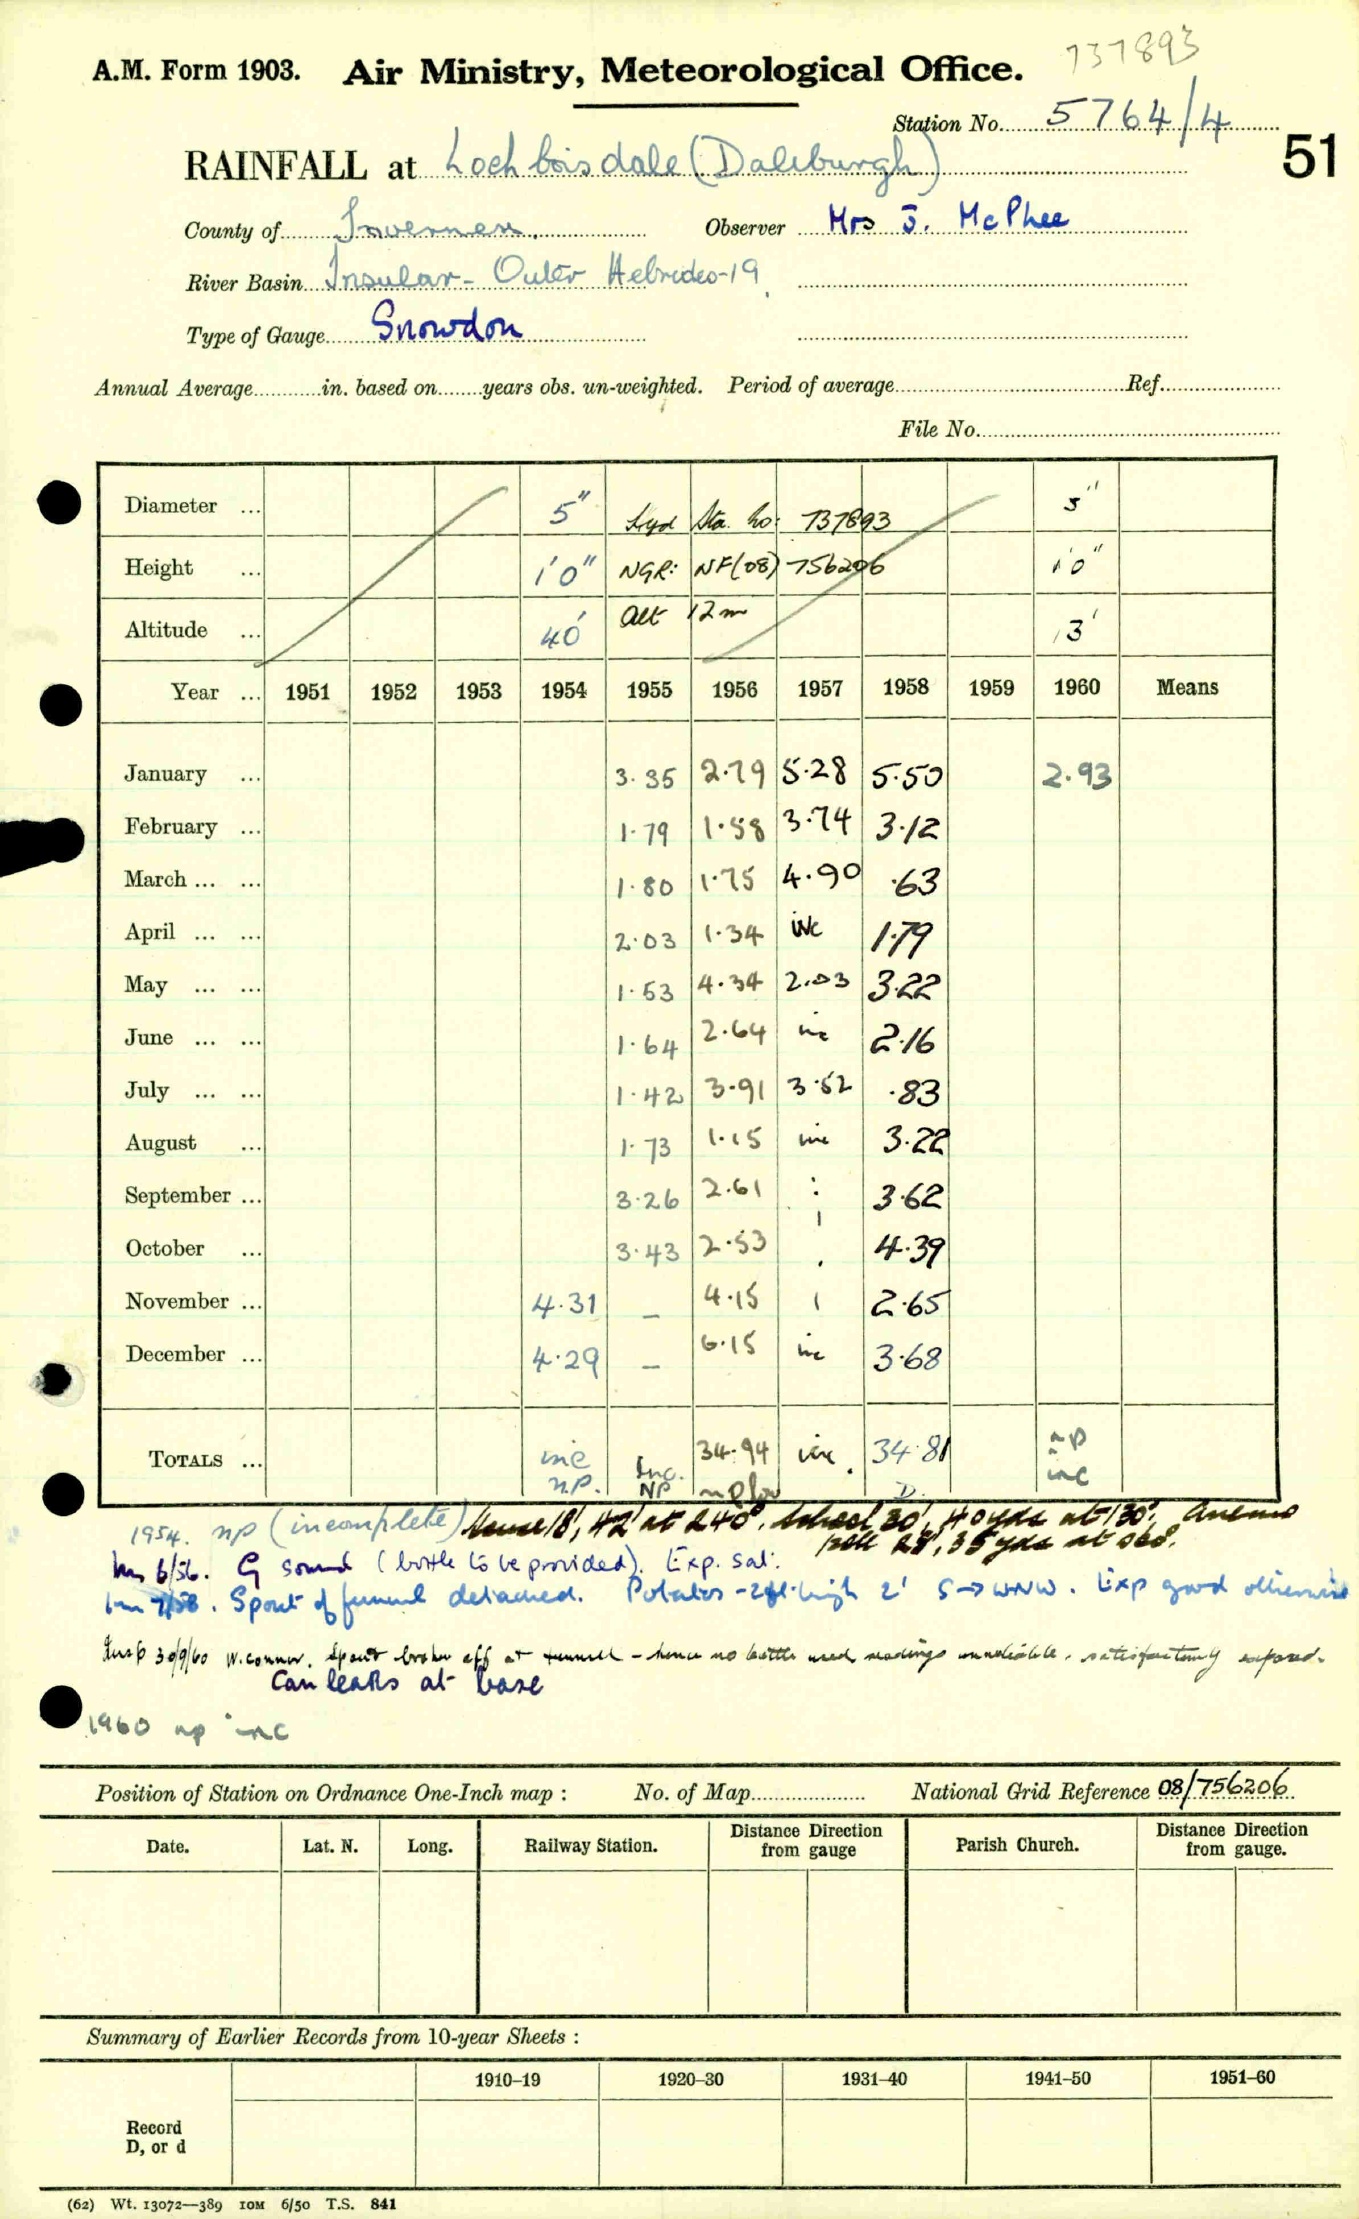 737893
A.M. Form 1903. Air Ministry, Meteorological Office.
Station No. 5764/4
51
RAINFALL at Lochboisdale (Daliburgh)
County of Inverness. Observer Mrs J. McPhee
River Basin Insular - Outer Hebrides-19
Type of Gauge Snowdon
Annual Average in. based on years obs. un-weighted. Period of average Ref.
File No.
Diameter ... 5" Sta. No: 737893 5"
Height ... 1'0" NGR: NF(08) 756206 1'0"
Altitude ... 40' Alt 12m 13'
Year ... 1951 1952 1953 1954 1955 1956 1957 1958 1959 1960 Means
January ... 3.35 2.79 5.28 5.50 2.93
February ... 1.79 1.58 3.74 3.12
March ... ... 1.80 1.75 4.90 .63
April ... ... 2.03 1.34 inc 1.79
May ... ... 1.53 4.34 2.03 3.22
June ... ... 1.64 2.64 inc 2.16
July ... ... 1.42 3.91 3.52 .83
August ... 1.73 1.15 inc 3.22
September ... 3.26 2.61 3.62
October ... 3.43 2.53 4.39
November ... 4.31 – 4.15 2.65
December ... 4.29 – 6.15 inc 3.68
TOTALS ... inc n.p. Inc. NP 34.94 np low inc. 34.81 D. np inc
1954. np (incomplete) House 18', 42' at 240°. School 30', 40 yds at 130°, 
28', 35 yds at 060°.
6/56. G sound (bottle to be provided). Exp. sat.
7/58. Spout of funnel detached. Potatoes - 2ft. high 2' S→WNW. Exp good otherwise
Insp 30/9/60 W. Connor. Spout broken off at funnel - hence no bottle used, readings unreliable. satisfactorily exposed.
Can leaks at base
1960 np inc
Position of Station on Ordnance One-Inch map : No. of Map National Grid Reference 08/756206
Date. Lat. N. Long. Railway Station. Distance Direction from gauge Parish Church. Distance Direction from gauge.
Summary of Earlier Records from 10-year Sheets :
1910–19 1920–30 1931–40 1941–50 1951–60
Record
D, or d
(62) Wt. 13072—389 10M 6/50 T.S. 841